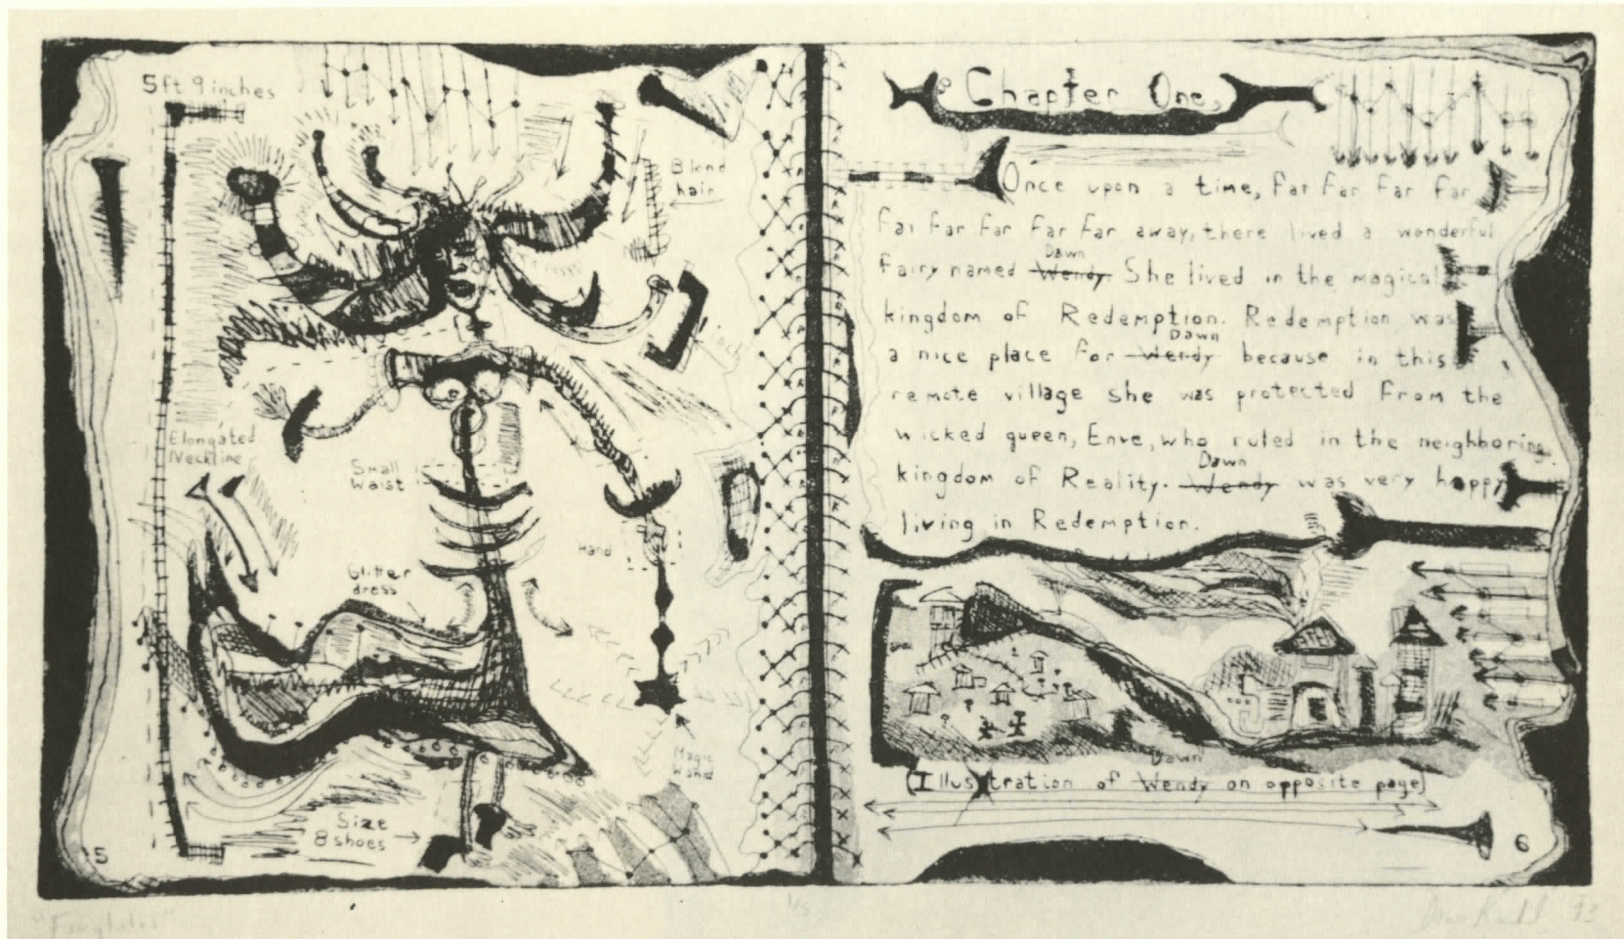 5ft 9 inches
Blond
hair
Elongated
Neckline
Small
Waist
Hand
Glitter
dress
Magic
Wand
Size
8 shoes
5
Chapter One,
Once upon a time, far far far far
far far far far far away, there lived a wonderful
Dawn
fairy named Wendy. She lived in the magical
kingdom of Redemption. Redemption was
Dawn
a nice place for Wendy because in this
remote village she was protected from the
wicked queen, Enve, who ruled in the neighboring
Dawn
kingdom of Reality. Wendy was very happy
living in Redemption.
Dawn
(Illustration of Wendy on opposite page)
6
"Fairytales"
1/5